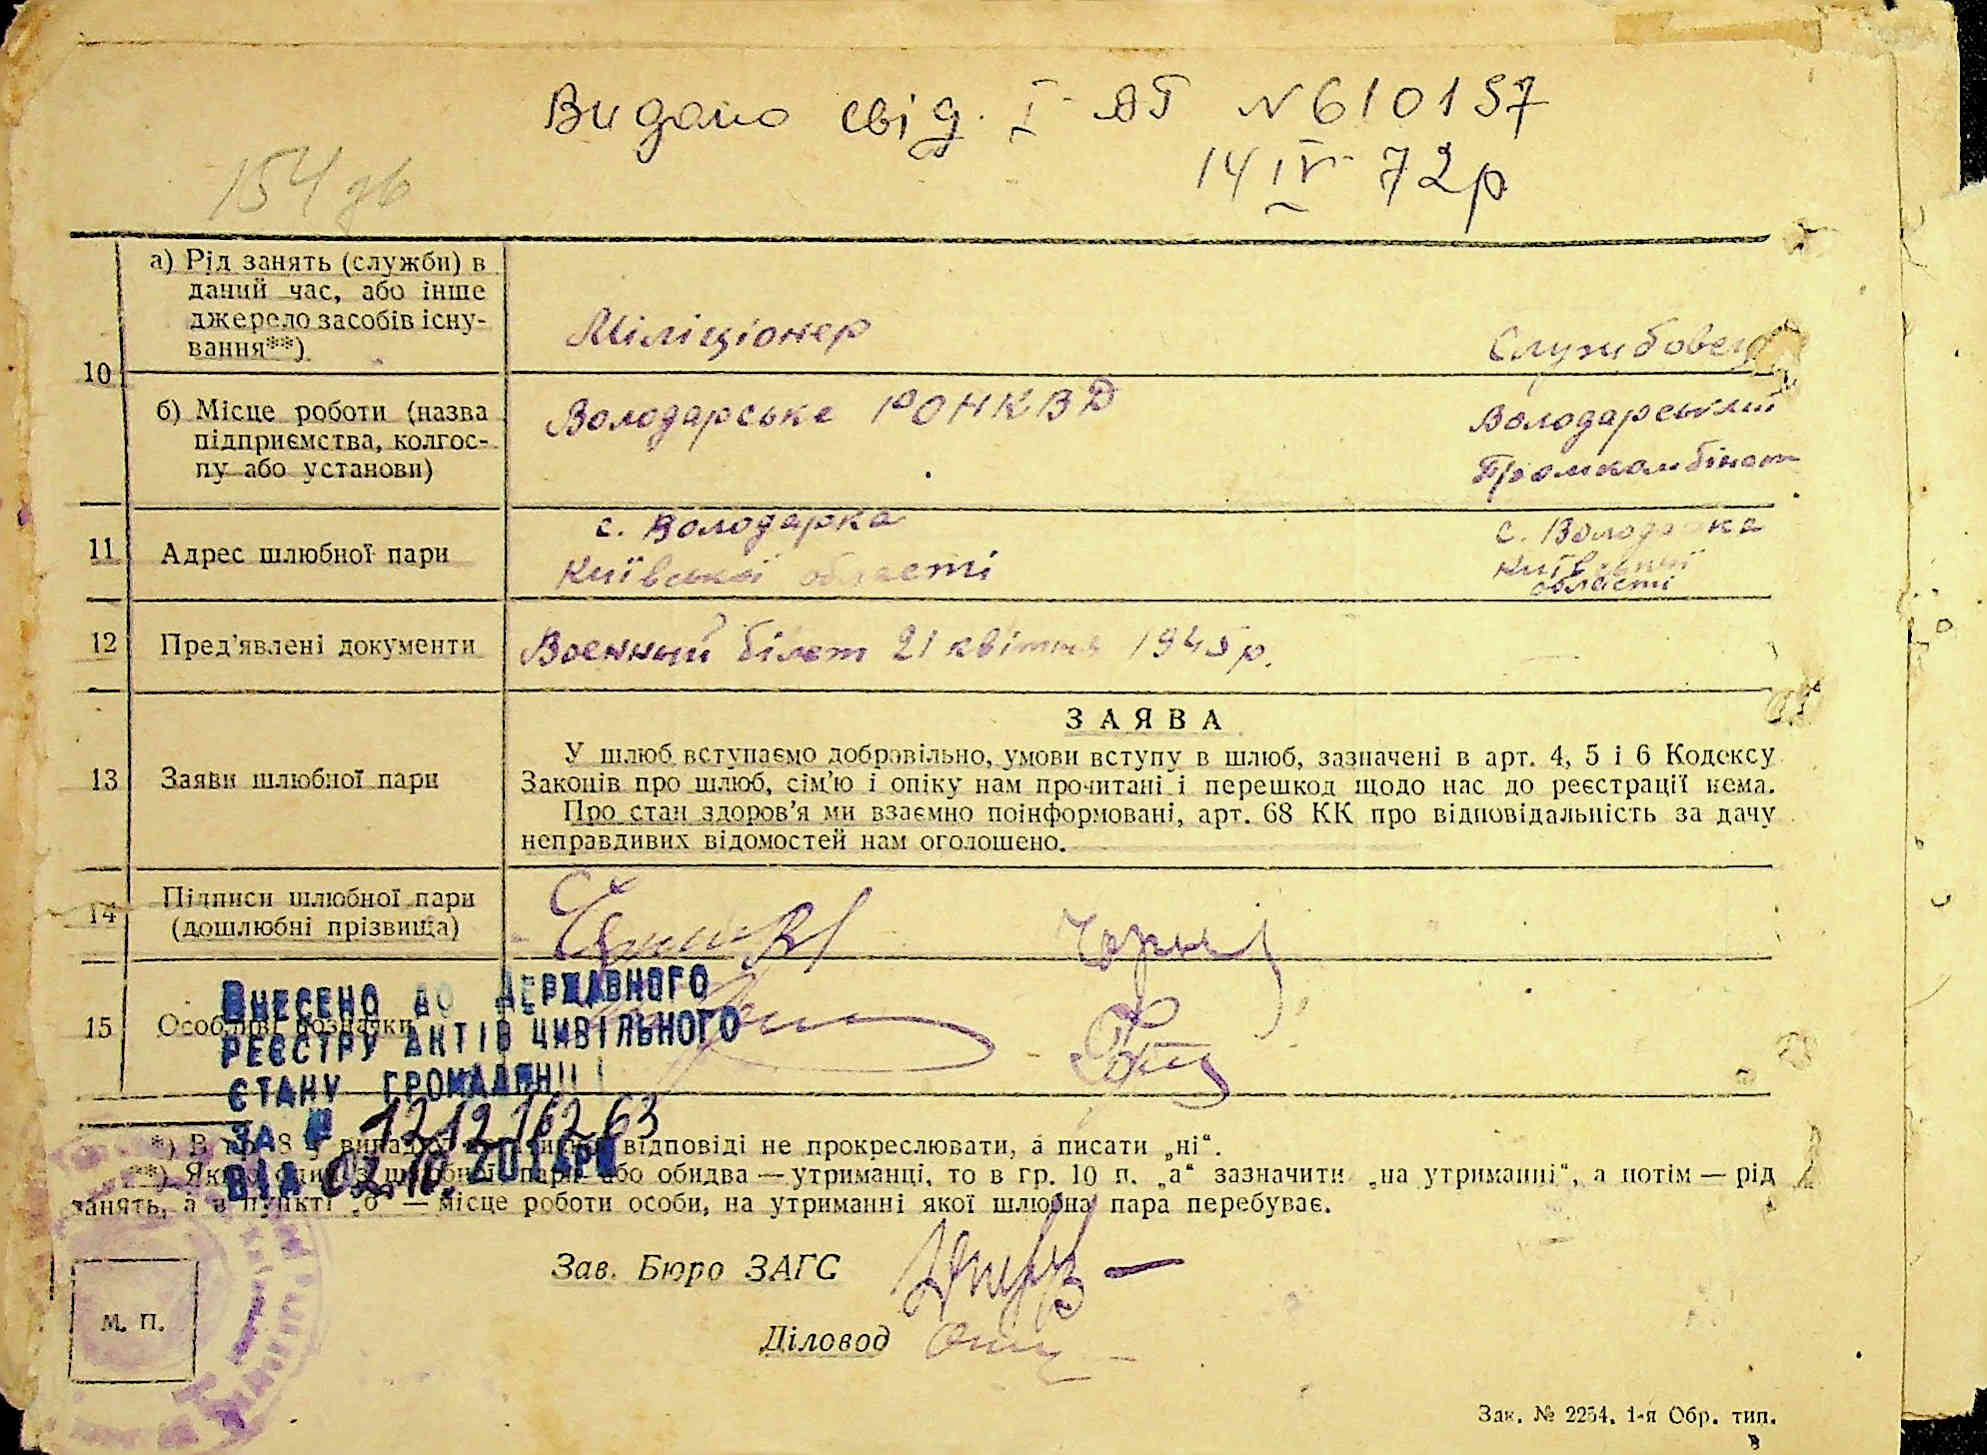 Видано свід. I-АГ N 610157
14 IV 72р
154
а) Рід занять (служби) в
даний час, або інше
джерело засобів існу-
вання**)
Міліціонер
Службовец
10
б) Місце роботи (назва
підприємства, колгос-
пу або установи)
Володарське РОНКВД
Володарський
Промкомбінат
11
Адрес шлюбної пари
с. Володарка
Київської області
с. Володарка
Київської
області
12
Пред'явлені документи
Военный білет 21 квітня 1945 р.
13
Заяви шлюбної пари
ЗАЯВА
У шлюб вступаємо добровільно, умови вступу в шлюб, зазначені в арт. 4, 5 і 6 Кодексу
Законів про шлюб, сім'ю і опіку нам прочитані і перешкод щодо нас до реєстрації нема.
Про стан здоров'я ми взаємно поінформовані, арт. 68 КК про відповідальність за дачу
неправдивих відомостей нам оголошено.
14
Підписи шлюбної пари
(дошлюбні прізвища)
15
Особливі позначки
ВНЕСЕНО ДО ДЕРЖАВНОГО
РЕЄСТРУ АКТІВ ЦИВІЛЬНОГО
СТАНУ ГРОМАДЯН
ЗА № 1212 162 63
ВІД 02.10.201 РК
*) В гр. 8 у випадку відповіді не прокреслювати, а писати „ні“.
**) Якщо один з шлюбної пари або обидва — утриманці, то в гр. 10 п. „а“ зазначити „на утриманні“, а потім — рід
занять, а в пункті „б“ — місце роботи особи, на утриманні якої шлюбна пара перебуває.
Зав. Бюро ЗАГС
Діловод
М. П.
Зак. № 2254. 1-я Обр. тип.